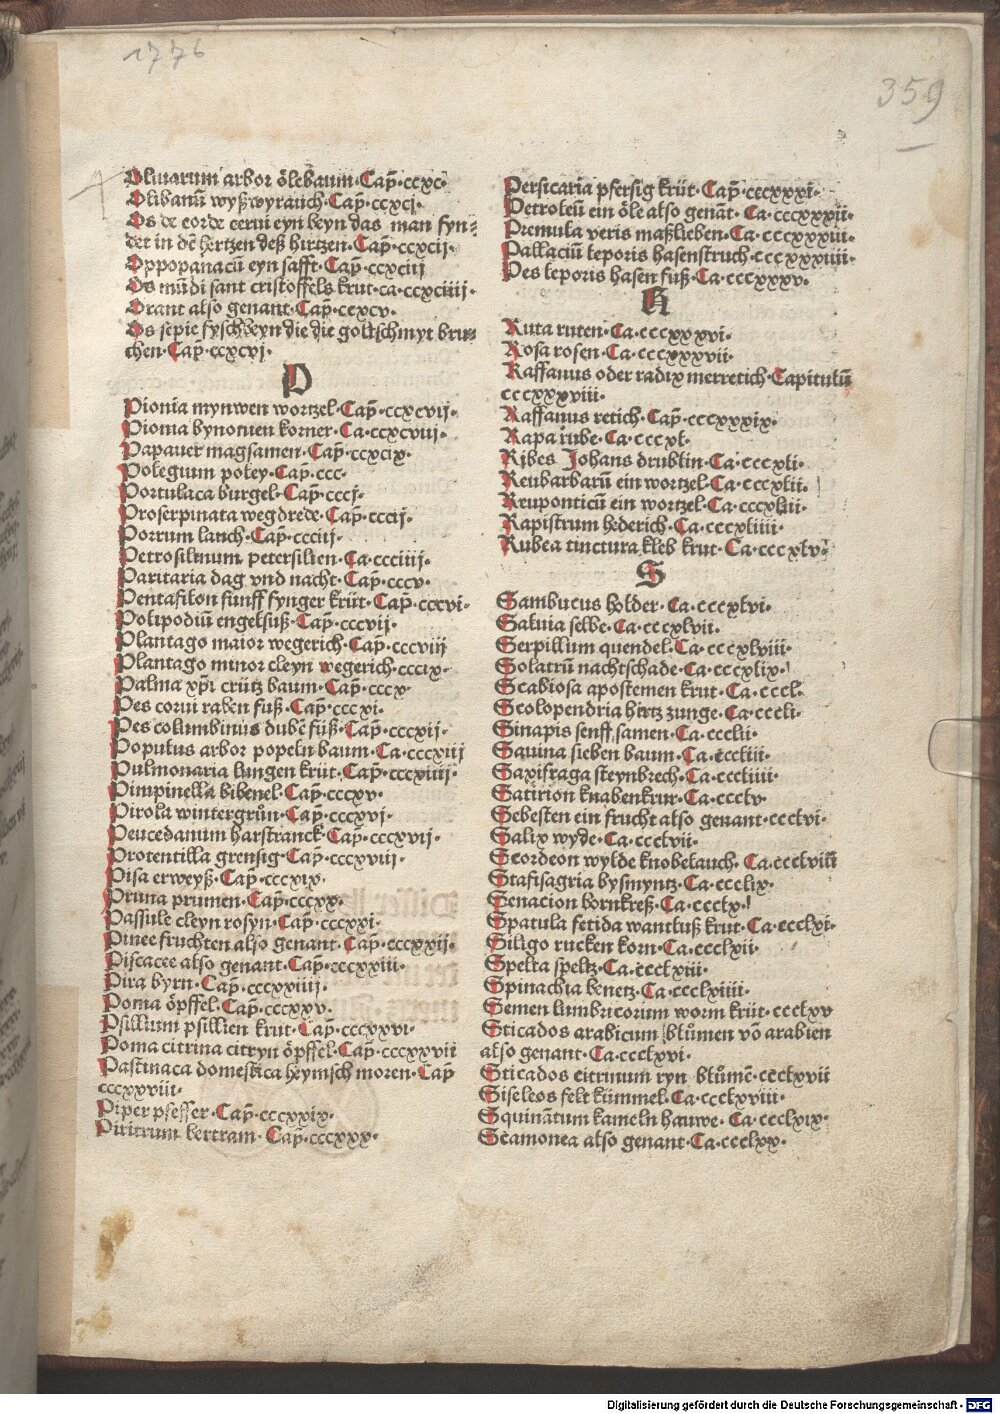 1776
359
Oliuarum arbor ölebaum·Cap̄·ccxc·
Olibanū wyßwyrauch·Cap̄·ccxcj·
Os de corde cerui eyn beyn das man fyn⸗
det in dē hertzen deß hirtzen·Cap̄·ccxcij·
Oppopanacū eyn safft·Cap̄·ccxciij
Os mūdi sant cristoffels krut·ca·ccxciiij·
Orant also genant·Cap̄·ccxcv·
Os sepie fyschbeyn die die goltschmyt bru⸗
chen·Cap̄·ccxcvj·
P
Pionia mynwen wortzel·Cap̄·ccxcvij·
Pionia bynonien korner·Ca·ccxcviij·
Papauer magsamen·Cap̄·ccxcix·
Polegium poley·Cap̄·ccc·
Portulaca burgel·Cap̄·cccj·
Proserpinata wegdrede·Cap̄·cccij·
Porrum lauch·Cap̄·ccciij·
Petrosilinum petersilien·Ca·ccciiij·
Paritaria dag vnd nacht·Cap̄·cccv·
Pentafilon funff fynger krüt·Cap̄·cccvi·
Polipodiū engelsuß·Cap̄·cccvij·
Plantago maior wegerich·Cap̄·cccviij
Plantago minor cleyn wegerich·cccix·
Palma xp̄i crütz baum·Cap̄·cccx·
Pes corui raben fuß·Cap̄·cccxi·
Pes columbinus dubē füß·Cap̄·cccxij·
Populus arbor popeln baum·Ca·cccxiij
Pulmonaria lungen krüt·Cap̄·cccxiiij·
Pimpinella bibenel·Cap̄·cccxv·
Pirola wintergrůn·Cap̄·cccxvj·
Peucedanum harstranck·Cap̄·cccxvij·
Protentilla grensig·Cap̄·cccxviij·
Pisa erweyß·Cap̄·cccxix·
Pruna prumen·Cap̄·cccxx·
Passule cleyn rosyn·Cap̄·cccxxi·
Pinee fruchten also genant·Cap̄·cccxxij·
Piscacee also genant·Cap̄·cccxxiii·
Pira byrn·Cap̄·cccxxiiij·
Poma öpffel·Cap̄·cccxxv·
Psillium psillien krut·Cap̄·cccxxvi·
Poma citrina citryn öpffel·Cap̄·cccxxvii
Pastinaca domestica heymsch moren·Cap̄
cccxxviii·
Piper pfeffer·Cap̄·cccxxix·
Piritrum bertram·Cap̄·cccxxx·
Persicaria pfersig krüt·Cap̄·cccxxxi·
Petroleū ein öle also genāt·Ca·cccxxxii·
Premula veris maßlieben·Ca·cccxxxiii·
Pallaciū leporis hasenstruch·cccxxxiiii·
Pes leporis hasen fuß·Ca·cccxxxv·
R
Ruta ruten·Ca·cccxxxvi·
Rosa rosen·Ca·cccxxxvii·
Raffanus oder radix merretich·Capitulū
cccxxxviii·
Raffanus retich·Cap̄·cccxxxix·
Rapa rube·Ca·cccxl·
Ribes Johans drublin·Ca·cccxli·
Reubarbarū ein wortzel·Ca·cccxlii·
Reuponticū ein wortzel·Ca·cccxliii·
Rapistrum hederich·Ca·cccxliiii·
Rubea tinctura kleb krut·Ca·cccxlv·
S
Sambucus holder·Ca·cccxlvi·
Saluia selbe·Ca·cccxlvii·
Serpillum quendel·Ca·cccxlviii·
Solatrū nachtschade·Ca·cccxlix·
Scabiosa apostemen krut·Ca·cccl·
Scolopendria hirtz zunge·Ca·cccli·
Sinapis senff samen·Ca·ccclii·
Sauina sieben baum·Ca·cccliii·
Saxifraga steynbrech·Ca·cccliiii·
Satirion knabenkrut·Ca·ccclv·
Sebesten ein frucht also genant·ccclvi·
Salix wyde·Ca·ccclvii·
Scordeon wylde knobelauch·Ca·ccclviii
Stafisagria bysmyntz·Ca·ccclix·
Senacion bornkreß·Ca·ccclx·
Spatula fetida wantluß krut·Ca·ccclxi·
Siligo rucken korn·Ca·ccclxii·
Spelta speltz·Ca·ccclxiii·
Spinachia benetz·Ca·ccclxiiii·
Semen lumbricorum worm krüt·ccclxv
Sticados arabicum blůmen vō arabien
also genant·Ca·ccclxvi·
Sticados citrinum ryn blůmē·ccclxvii
Siseleos felt kümmel·Ca·ccclxviii·
Squināтum kameln hauwe·Ca·ccclxix·
Scamonea also genant·Ca·ccclxx·
Digitalisierung gefördert durch die Deutsche Forschungsgemeinschaft - DFG